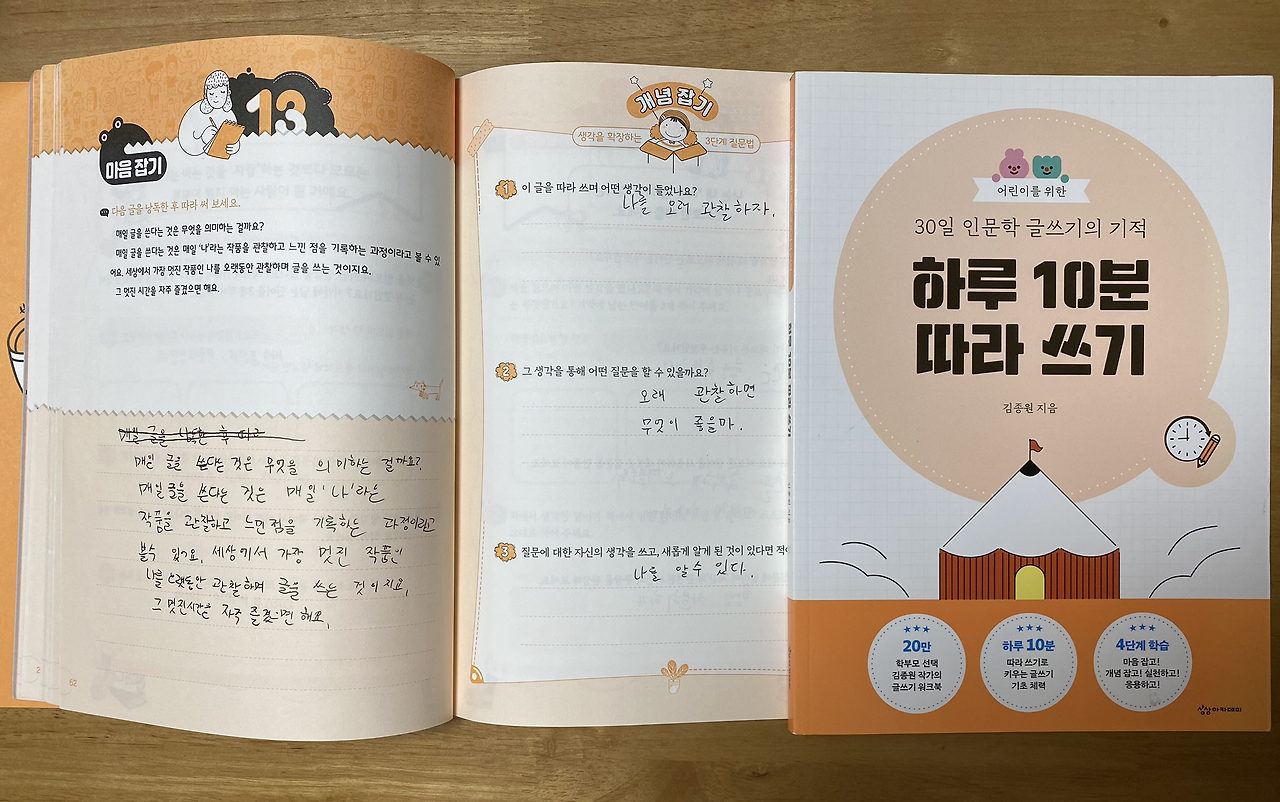 13
마음 잡기
다음 글을 낭독한 후 따라 써 보세요.
매일 글을 쓴다는 것은 무엇을 의미하는 걸까요?
매일 글을 쓴다는 것은 매일 '나'라는 작품을 관찰하고 느낀 점을 기록하는 과정이라고 볼 수 있
어요. 세상에서 가장 멋진 작품인 나를 오랫동안 관찰하며 글을 쓰는 것이지요.
그 멋진 시간을 자주 즐겼으면 해요.
매일 글을 낭독한 후 따라
매일 글을 쓴다는 것은 무엇을 의미하는 걸까요?
매일 글을 쓴다는 것은 매일 '나'라는
작품을 관찰하고 느낀점을 기록하는 과정이라고
볼수 있어요. 세상에서 가장 멋진 작품인
나를 오랫동안 관찰하며 글을 쓰는 것이지요.
그 멋진시간을 자주 즐겼으면 해요.
2
62
개념 잡기
생각을 확장하는 3단계 질문법
1 이 글을 따라 쓰며 어떤 생각이 들었나요?
나를 오래 관찰하자.
2 그 생각을 통해 어떤 질문을 할 수 있을까요?
오래 관찰하면
무엇이 좋을까.
3 질문에 대한 자신의 생각을 쓰고, 새롭게 알게 된 것이 있다면 적어
나를 알수 있다.
하루 10분 따라 쓰기
어린이를 위한
30일 인문학 글쓰기의 기적
하루 10분
따라 쓰기
김종원 지음
20만
학부모 선택
김종원 작가의
글쓰기 워크북
하루 10분
따라 쓰기로
키우는 글쓰기
기초 체력
4단계 학습
마음 잡고!
개념 잡고! 실천하고!
응용하고!
상상아카데미